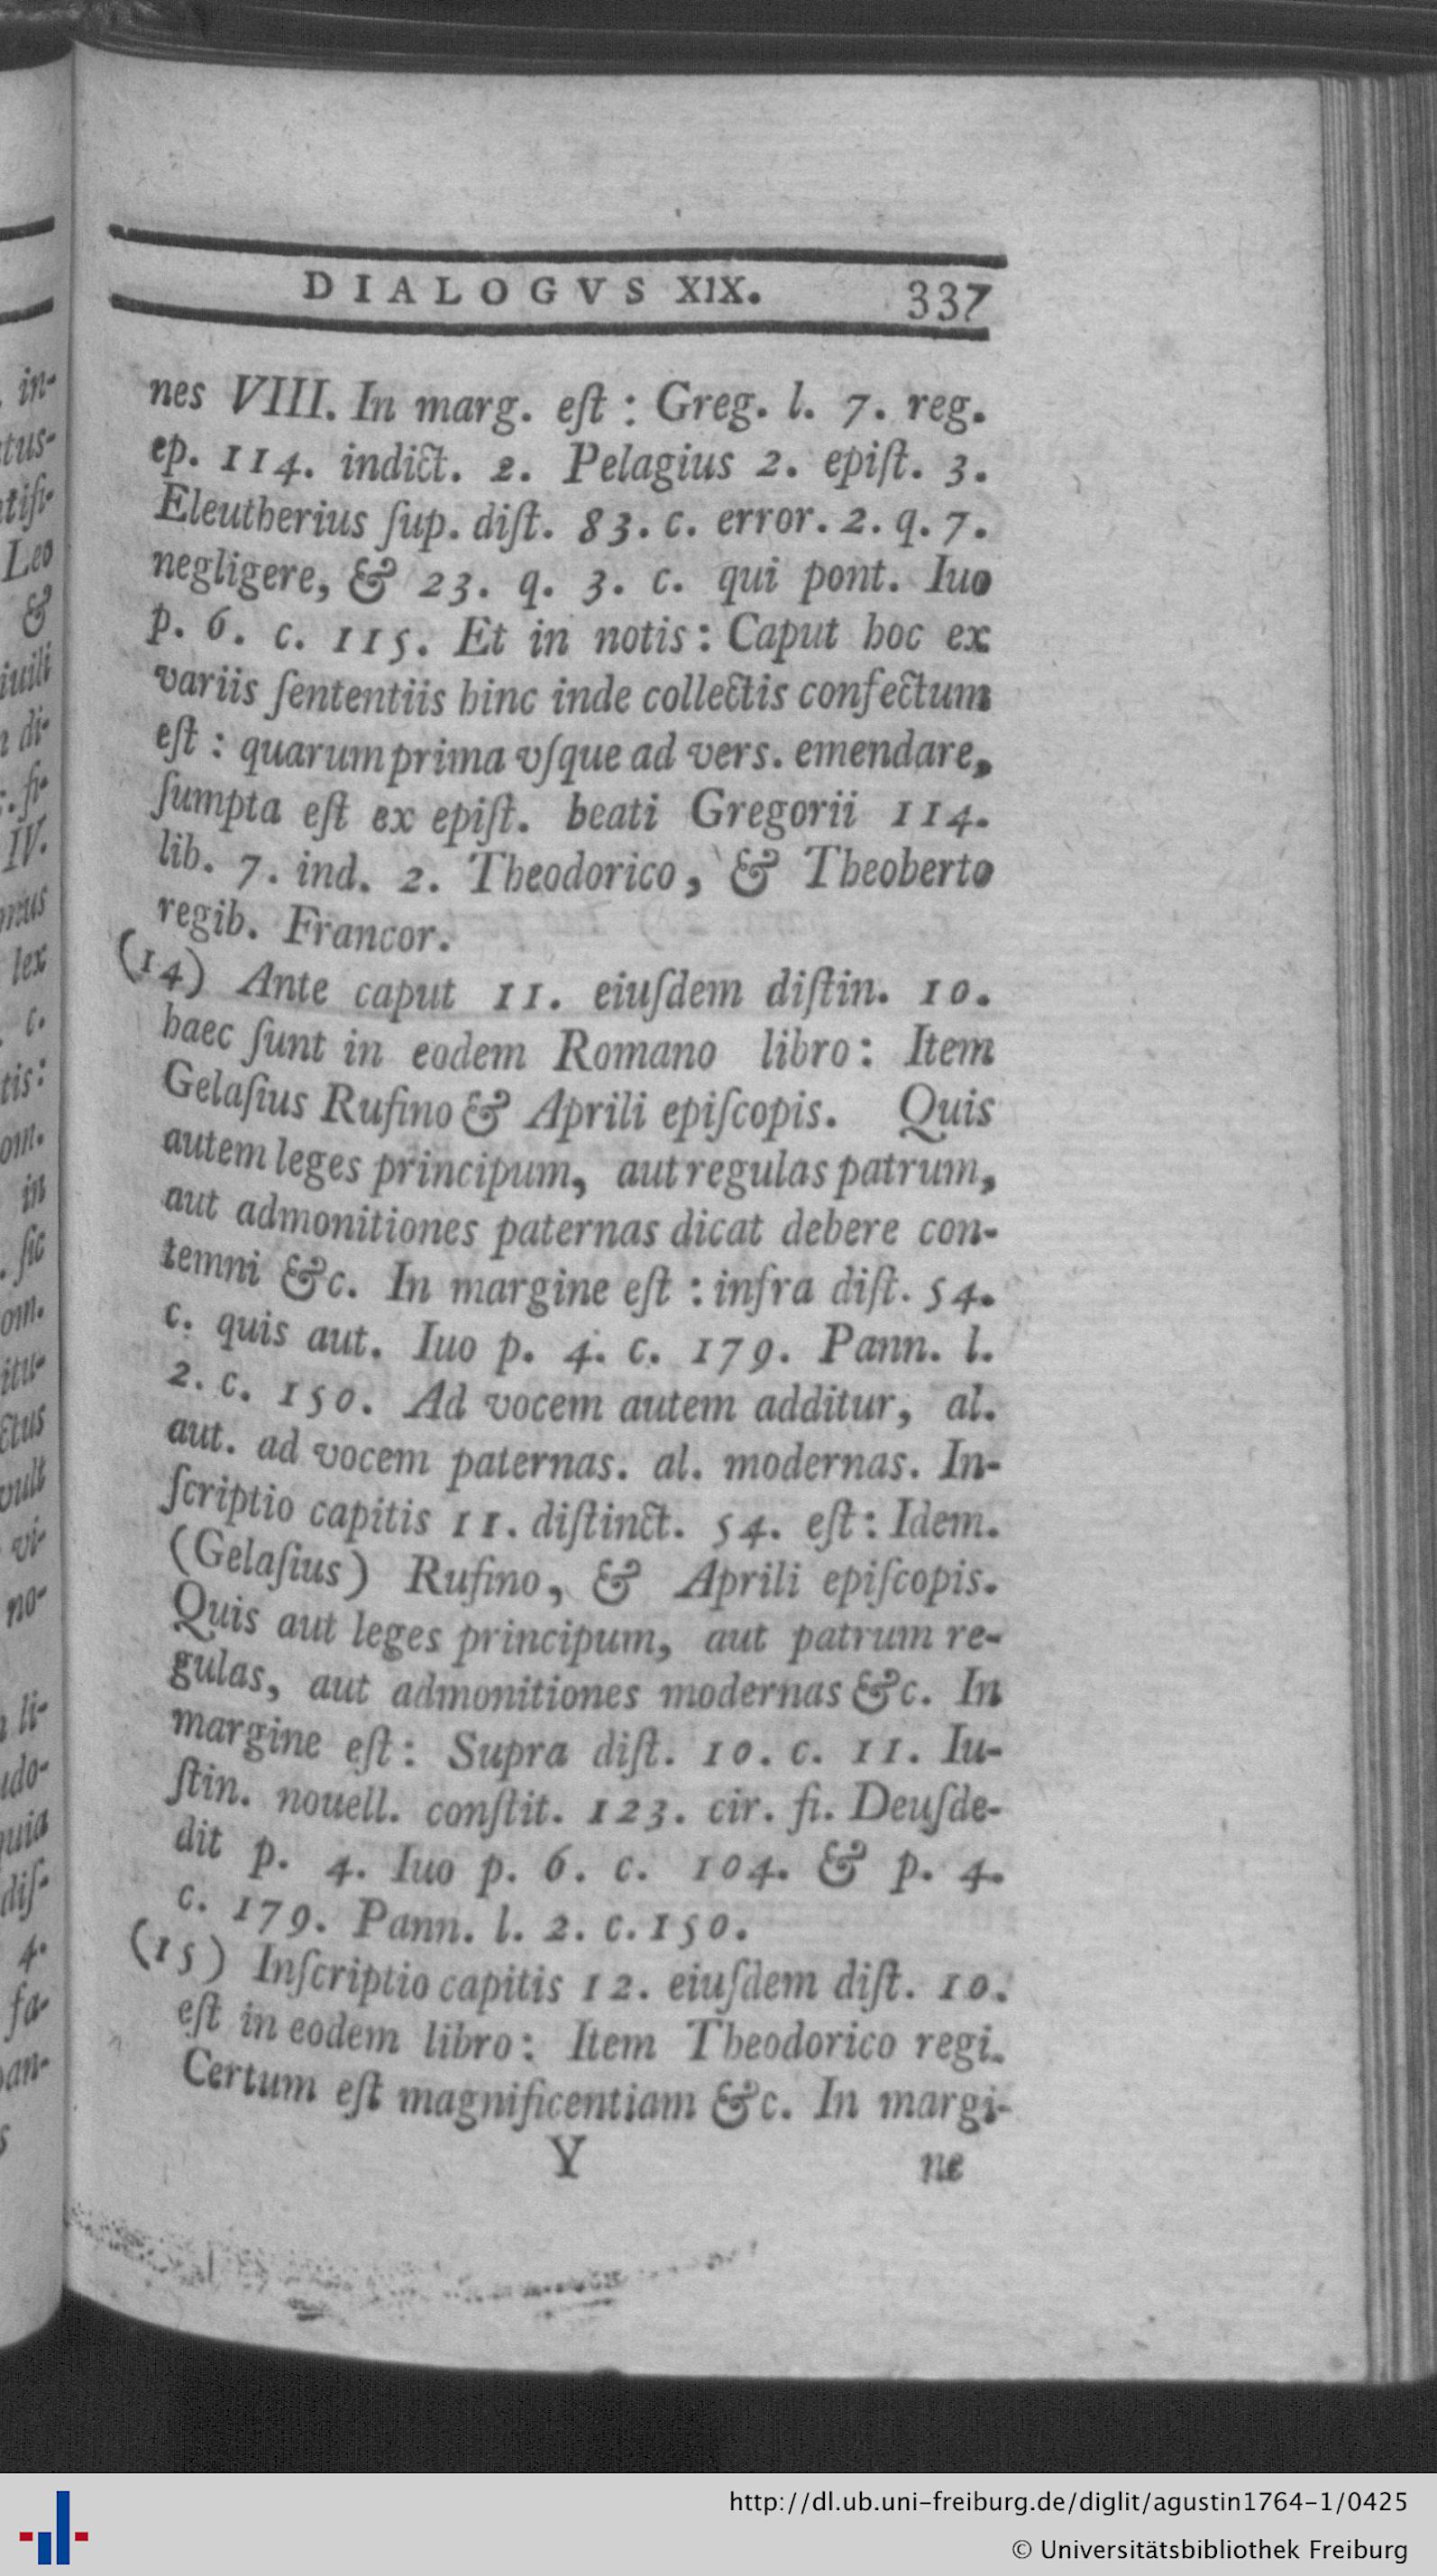 DIALOGVS XIX. 337
nes VIII. In marg. eſt : Greg. l. 7. reg.
ep. 114. indict. 2. Pelagius 2. epiſt. 3.
Eleutherius ſup. diſt. 83. c. error. 2. q. 7.
negligere, & 23. q. 3. c. qui pont. Iuo
p. 6. c. 115. Et in notis: Caput hoc ex
variis ſententiis hinc inde collectis confectum
eſt : quarum prima vſque ad vers. emendare,
ſumpta eſt ex epiſt. beati Gregorii 114.
lib. 7. ind. 2. Theodorico, & Theoberto
regib. Francor.
(14) Ante caput 11. eiuſdem diſtin. 10.
haec ſunt in eodem Romano libro: Item
Gelaſius Rufino & Aprili epiſcopis. Quis
autem leges principum, aut regulas patrum,
aut admonitiones paternas dicat debere con-
temni &c. In margine eſt : infra diſt. 54.
c. quis aut. Iuo p. 4. c. 179. Pann. l.
2. c. 150. Ad vocem autem additur, al.
aut. ad vocem paternas. al. modernas. In-
ſcriptio capitis 11. diſtinct. 54. eſt: Idem.
(Gelaſius) Rufino, & Aprili epiſcopis.
Quis aut leges principum, aut patrum re-
gulas, aut admonitiones modernas &c. In
margine eſt: Supra diſt. 10. c. 11. Iu-
ſtin. nouell. conſtit. 123. cir. fi. Deuſde-
dit p. 4. Iuo p. 6. c. 104. & p. 4.
c. 179. Pann. l. 2. c. 150.
(15) Inſcriptio capitis 12. eiuſdem diſt. 10.
eſt in eodem libro: Item Theodorico regi.
Certum eſt magnificentiam &c. In margi-
Y ne
in-
tus-
tifi-
Leo
&
iuili
di-
fi-
IV.
mus
lex
c.
tis:
om.
in
ſic
om.
itu-
ctus
vult
vi-
no-
li-
udo-
quia
diſ-
4.
fa-
an-
s
http://dl.ub.uni-freiburg.de/diglit/agustin1764-1/0425
© Universitätsbibliothek Freiburg